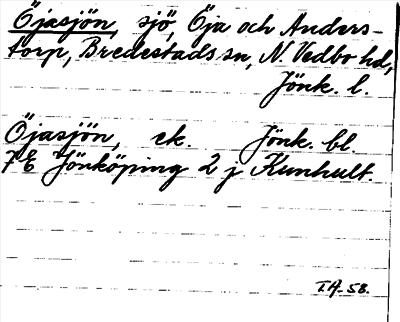 Öjasjön, sjö, Öja och Anders-
torp, Bredestads sn, N. Vedbo hd,
Jönk. l.
Öjasjön, ek. Jönk. bl.
7E Jönköping 2 j Kunhult.
T.A. 58.